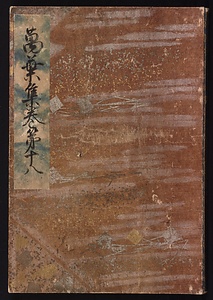 萬葉集巻第十八